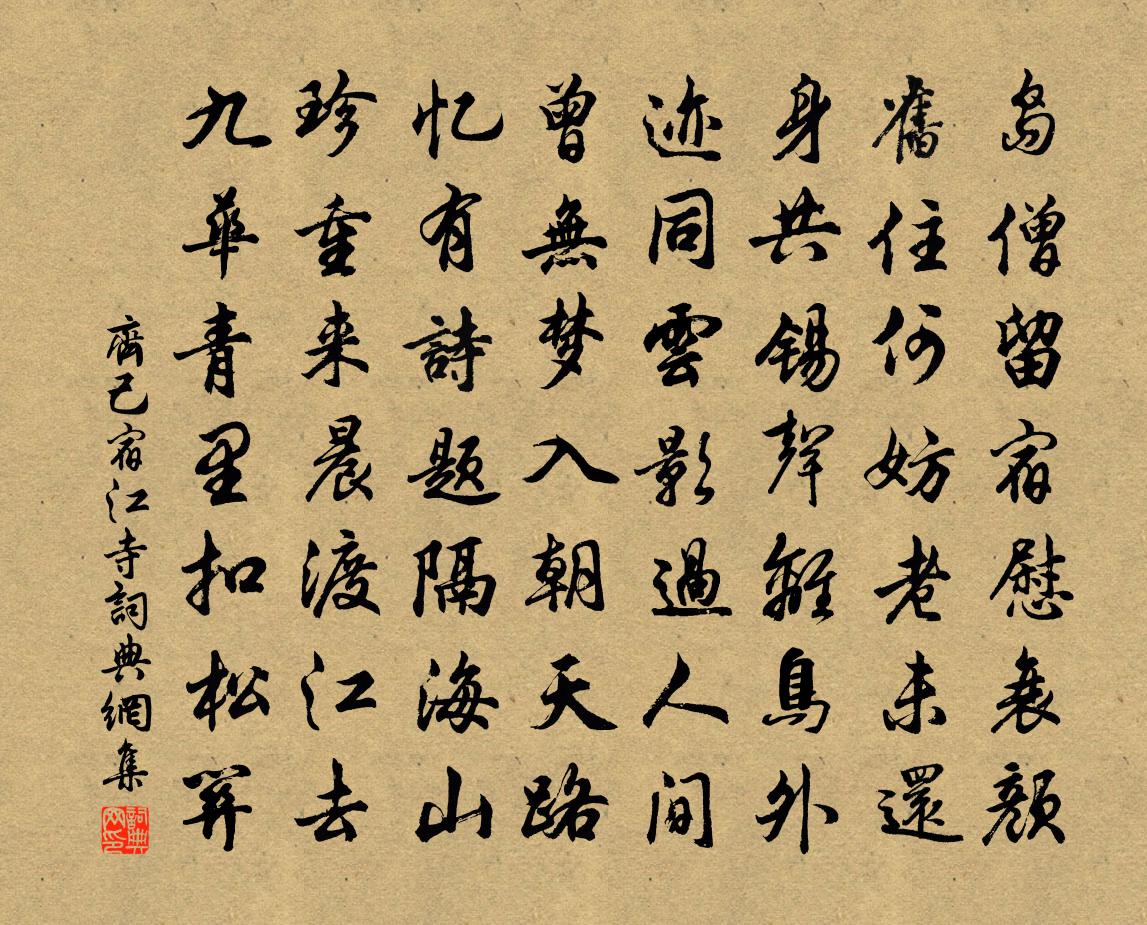 島僧留宿慰衰顔
舊住何妨老未還
身共錫聲離鳥外
迹同雲影過人間
曾無梦入朝天路
忆有詩题隔海山
珍重来晨渡江去
九華青里扣松關
齊己宿江寺詞典網集
詞典网印